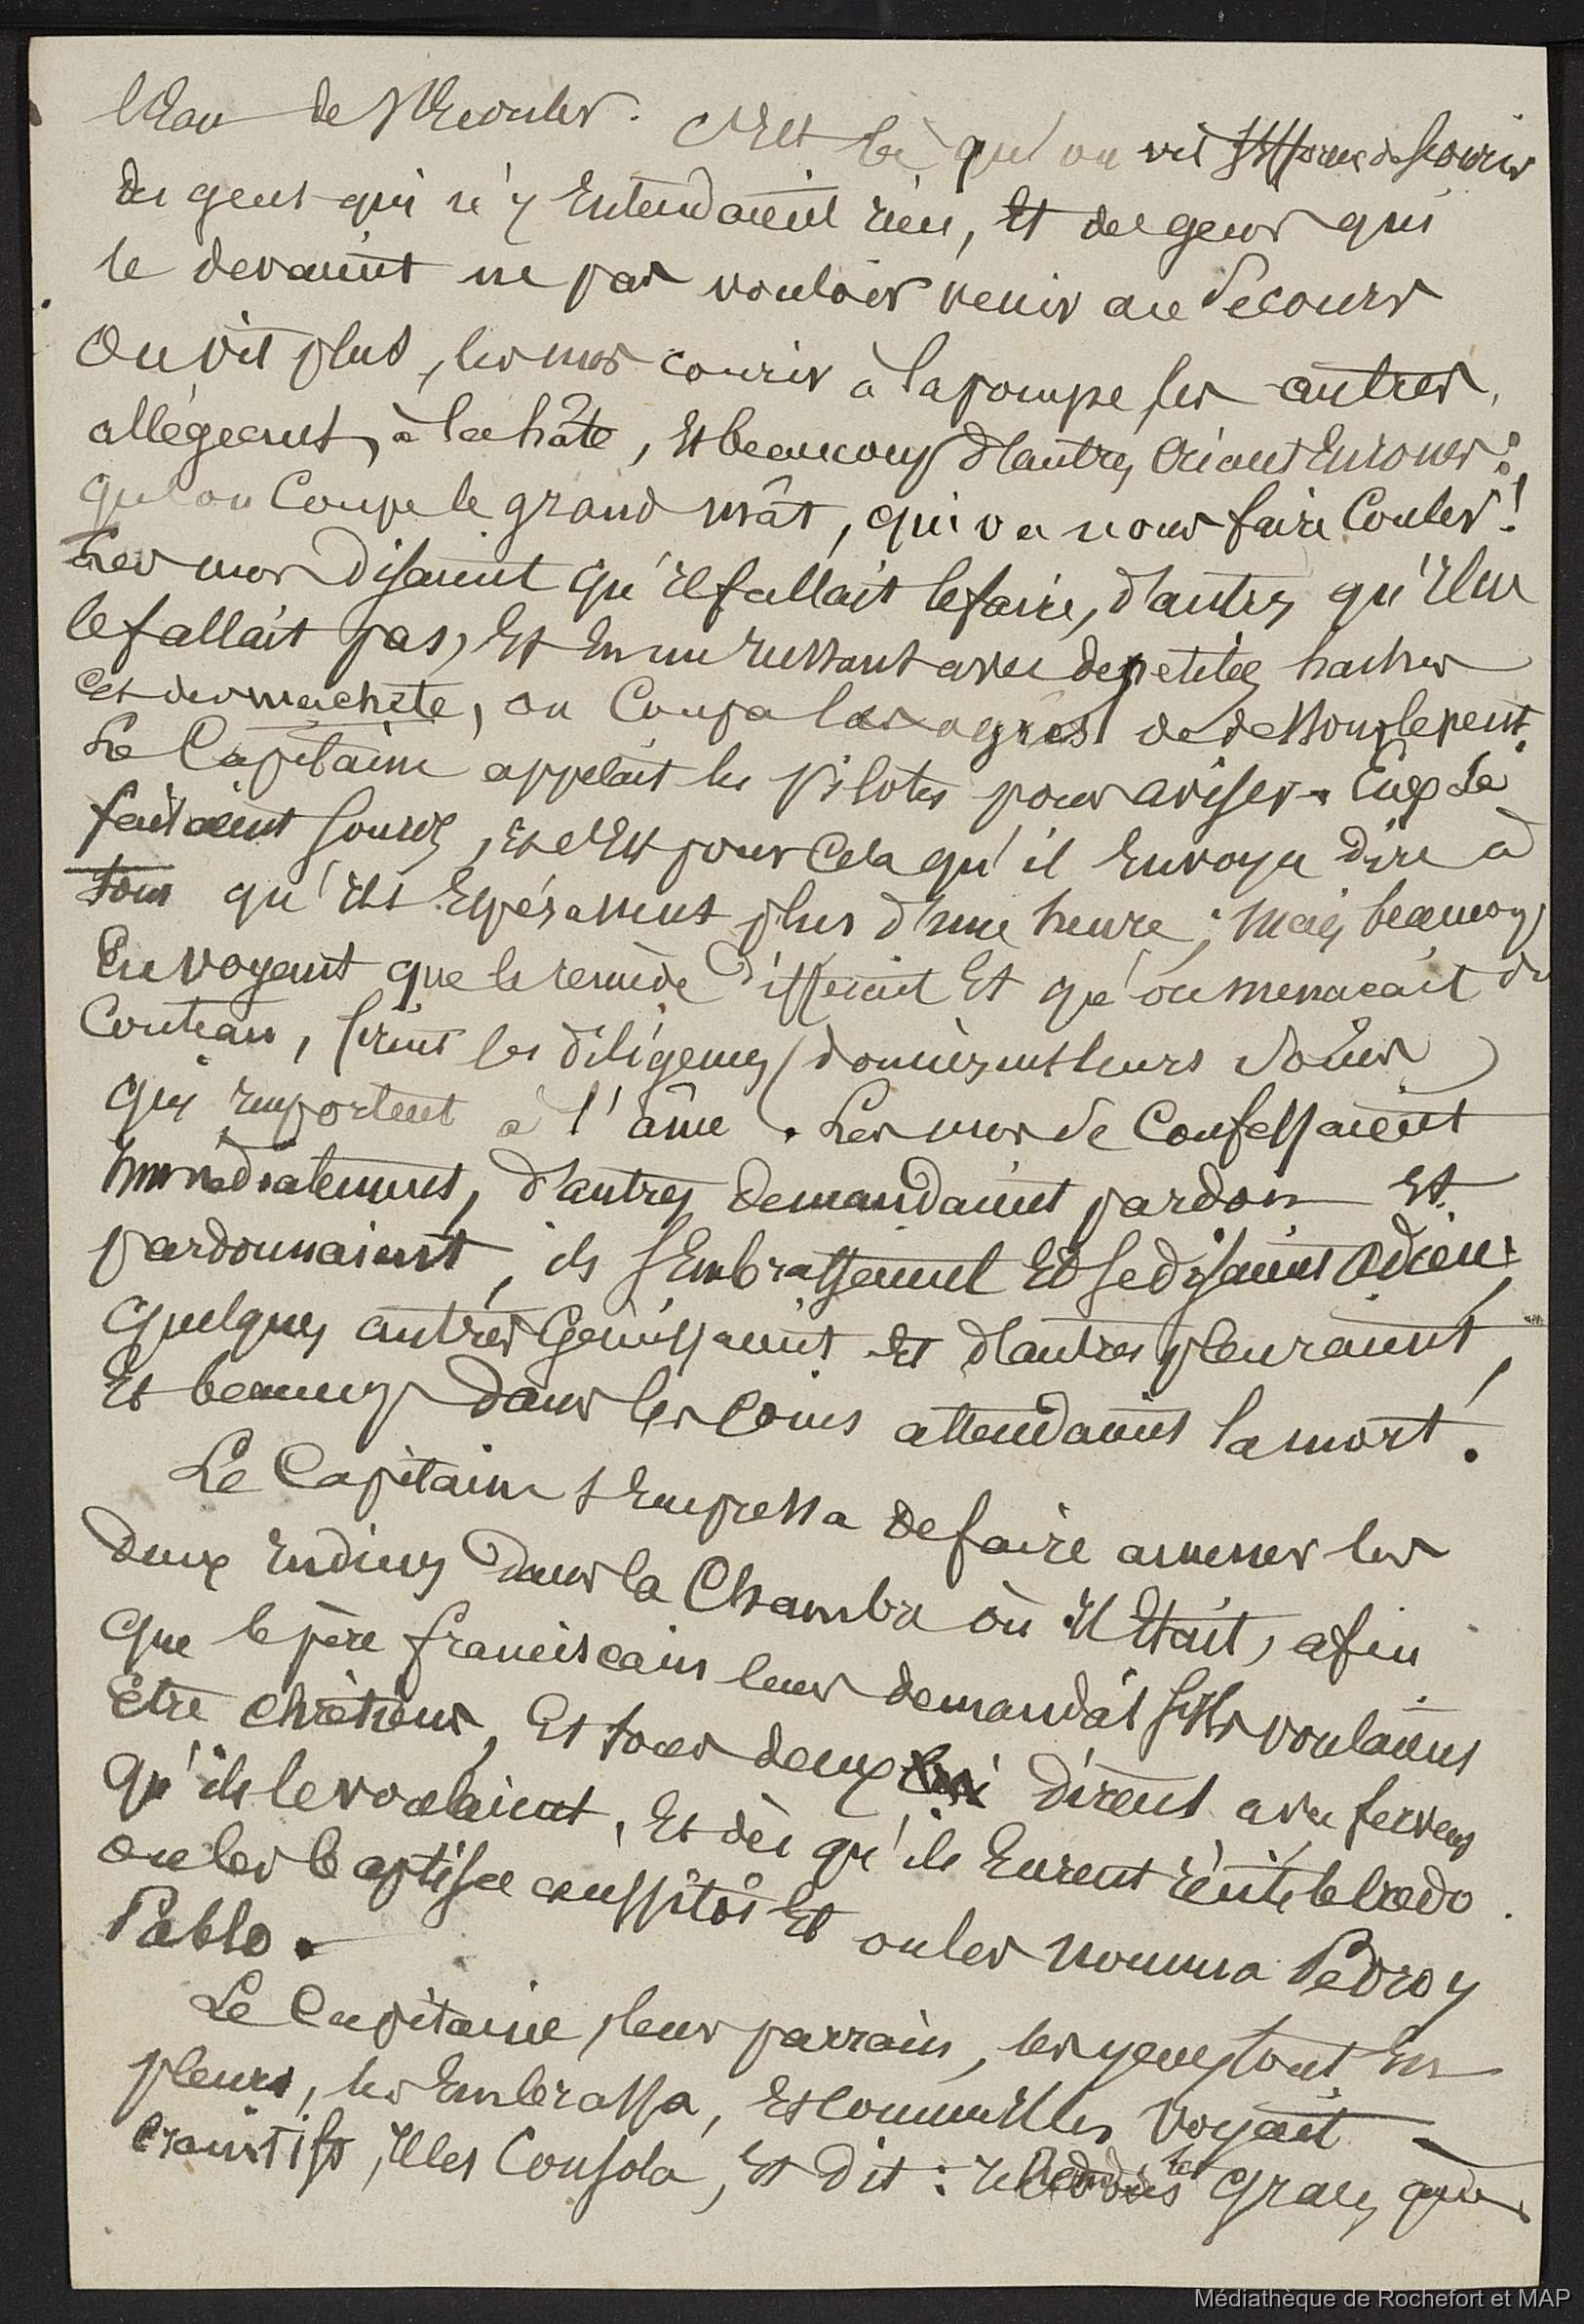 l'eau de s'écouler. C'est là qu'on vit s'efforcer de courir
des gens qui n'y entendaient rien, et des gens qui
le devaient ne pas vouloir venir au secours
On vit plus, les uns courir à la pompe les autres,
allégeant, à la hâte, et beaucoup d'autres criant encore :
qu'on coupe le grand mât, qui va nous faire couler !
Les uns disaient qu'il fallait le faire, d'autres qu'il ne
le fallait pas, et en un instant avec de petites haches
et des machete, on coupa les agrès de dessous le pont.
Le Capitaine appelait les Pilotes pour aviser. Eux de
faisaient sourds, et c'est pour cela qu'il envoya dire à
tous qu'ils espérassent plus d'une heure ; mais beaucoup
en voyant que le remède différait et qu'on menaçait du
couteau, firent les diligences (donnèrent leurs soins)
qui importent à l'âme. Les uns se confessaient
immédiatement, d'autres demandaient pardon et
pardonnaient, ils s'embrassaient et se disaient adieu ;
quelques autres gémissaient et d'autres pleuraient,
Et beaucoup dans les coins attendaient la mort !
Le Capitaine s'empressa de faire amener les
deux indiens dans la chambre où il était, afin
que le père franciscain leur demandât s'ils voulaient
être chrétiens, et tous deux dirent avec ferveur
qu'ils le voulaient, et dès qu'ils eurent récité le credo
on les baptisa aussitôt et on les nomma Pedro y
Pablo.
Le Capitaine, leur parrain, les yeux tout en
pleurs, les embrassa, et comme il les voyait
craintifs, il les consola, et dit : rendons les graces que
Médiathèque de Rochefort et MAP